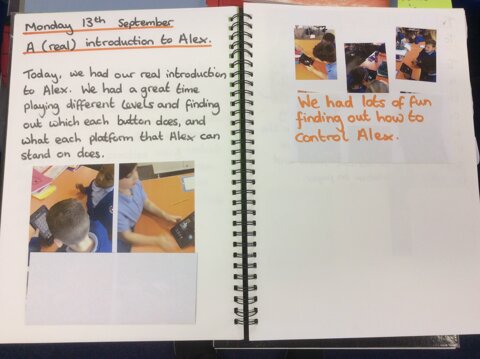 Monday 13th September
A (real) introduction to Alex.
Today, we had our real introduction
to Alex. We had a great time
playing different levels and finding
out which each button does, and
what each platform that Alex can
stand on does.
We had lots of fun
finding out how to
control Alex.